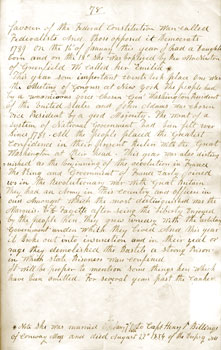 78.
favour of the Federal Constitution was called
Federalists and those opposed Democrats
1789 On the 16 of January this year I had a Daughter
born and on the 18th she was baptized by
of Greenfield We called her
This year some important events took place one was
the Meeting of Congress at New York the people had
by a Unanimous voice chosen Geo Washington President
of the United States and John Adams was chosen
Vice President by a good Majority. The want of a
System of National Government had been felt ever
since 1781 All the People placed the Greatest
Confidence in their present Rulers with the Great
Washington at their head This year was also noticed
as the beginning of the revolution in France
The King and Government of France early joined
us in the Revolutionary War with Great Britain.
They had an Army in this Country and officers in
our Amongst which the most distinguished was the
Marquis De La Fayette after seeing the liberty enjoyed
by the people here they grew uneasy with the
Government under which they lived And this year
it broke out into insurrection and in their
rage they demolished the Bastile a Strong Prison
in which State Prisoners was confined
It will be proper to mention some things here which
have been omitted For several years past the
Note She was married to Capt Billings
of Conway and died August 23d 1854